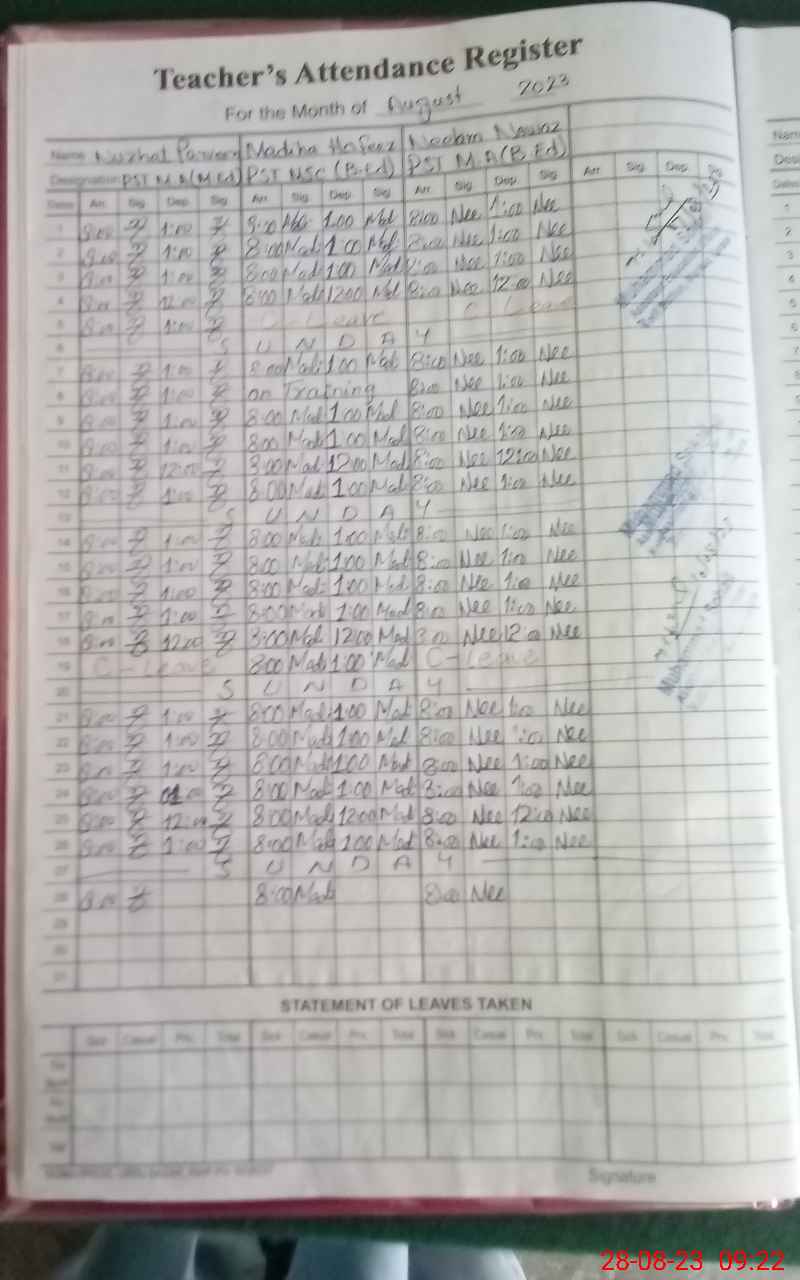 Teacher's Attendance Register
For the Month of August 2023
Name Nuzhat Parveen Madiha Hafeez Neelam Nawaz
Designation PST M.A(M.Ed) PST MSC (B.Ed) PST M.A(B.Ed)
Dates Arr. Sig Dep. Sig Arr. Sig Dep. Sig Arr. Sig Dep. Sig Arr. Sig. Dep.
1 8:00 1:00 8:00 1:00 8:00 Nee 1:00 Nee
2 8:00 1:00 8:00 Mad 1:00 Mad 8:00 Nee 1:00 Nee
3 8:00 1:00 8:00 Mad 1:00 Mad 8:00 Nee 1:00 Nee
4 8:00 12:00 8:00 Mad 1200 Mad 8:00 Nee 12:00 Nee
5 8:00 1:00 C-Leave C-Leave
6 S U N D A Y
7 8:00 1:00 8:00 Mad 1:00 Mad 8:00 Nee 1:00 Nee
8 8:00 1:00 on Training 8:00 Nee 1:00 Nee
9 8:00 1:00 8:00 Mad 1:00 Mad 8:00 Nee 1:00 Nee
10 8:00 1:00 8:00 Mad 1:00 Mad 8:00 Nee 1:00 Nee
11 8:00 12:00 8:00 Mad 1200 Mad 8:00 Nee 12:00 Nee
12 8:00 1:00 8:00 Mad 1:00 Mad 8:00 Nee 1:00 Nee
13 S U N D A Y
14 8:00 1:00 8:00 Mad 1:00 Mad 8:00 Nee 1:00 Nee
15 8:00 1:00 8:00 Mad 1:00 Mad 8:00 Nee 1:00 Nee
16 8:00 1:00 8:00 Mad 1:00 Mad 8:00 Nee 1:00 Nee
17 8:00 1:00 8:00 Mad 1:00 Mad 8:00 Nee 1:00 Nee
18 8:00 12:00 8:00 Mad 1200 Mad 8:00 Nee 12:00 Nee
19 C-Leave 8:00 Mad 1:00 Mad C-Leave
20 S U N D A Y
21 8:00 1:00 8:00 Mad 1:00 Mad 8:00 Nee 1:00 Nee
22 8:00 1:00 8:00 Mad 1:00 Mad 8:00 Nee 1:00 Nee
23 8:00 1:00 8:00 Mad 1:00 Mad 8:00 Nee 1:00 Nee
24 8:00 01:00 8:00 Mad 1:00 Mad 8:00 Nee 1:00 Nee
25 8:00 12:00 8:00 Mad 1200 Mad 8:00 Nee 12:00 Nee
26 8:00 1:00 8:00 Mad 1:00 Mad 8:00 Nee 1:00 Nee
27 S U N D A Y
28 8:00 8:00 Mad 8:00 Nee
29
30
31
STATEMENT OF LEAVES TAKEN
Sick Casual Prv. Total Sick Casual Prv. Total Sick Casual Prv. Total Sick Casual Prv. Total
Signature
28-08-23 09:22